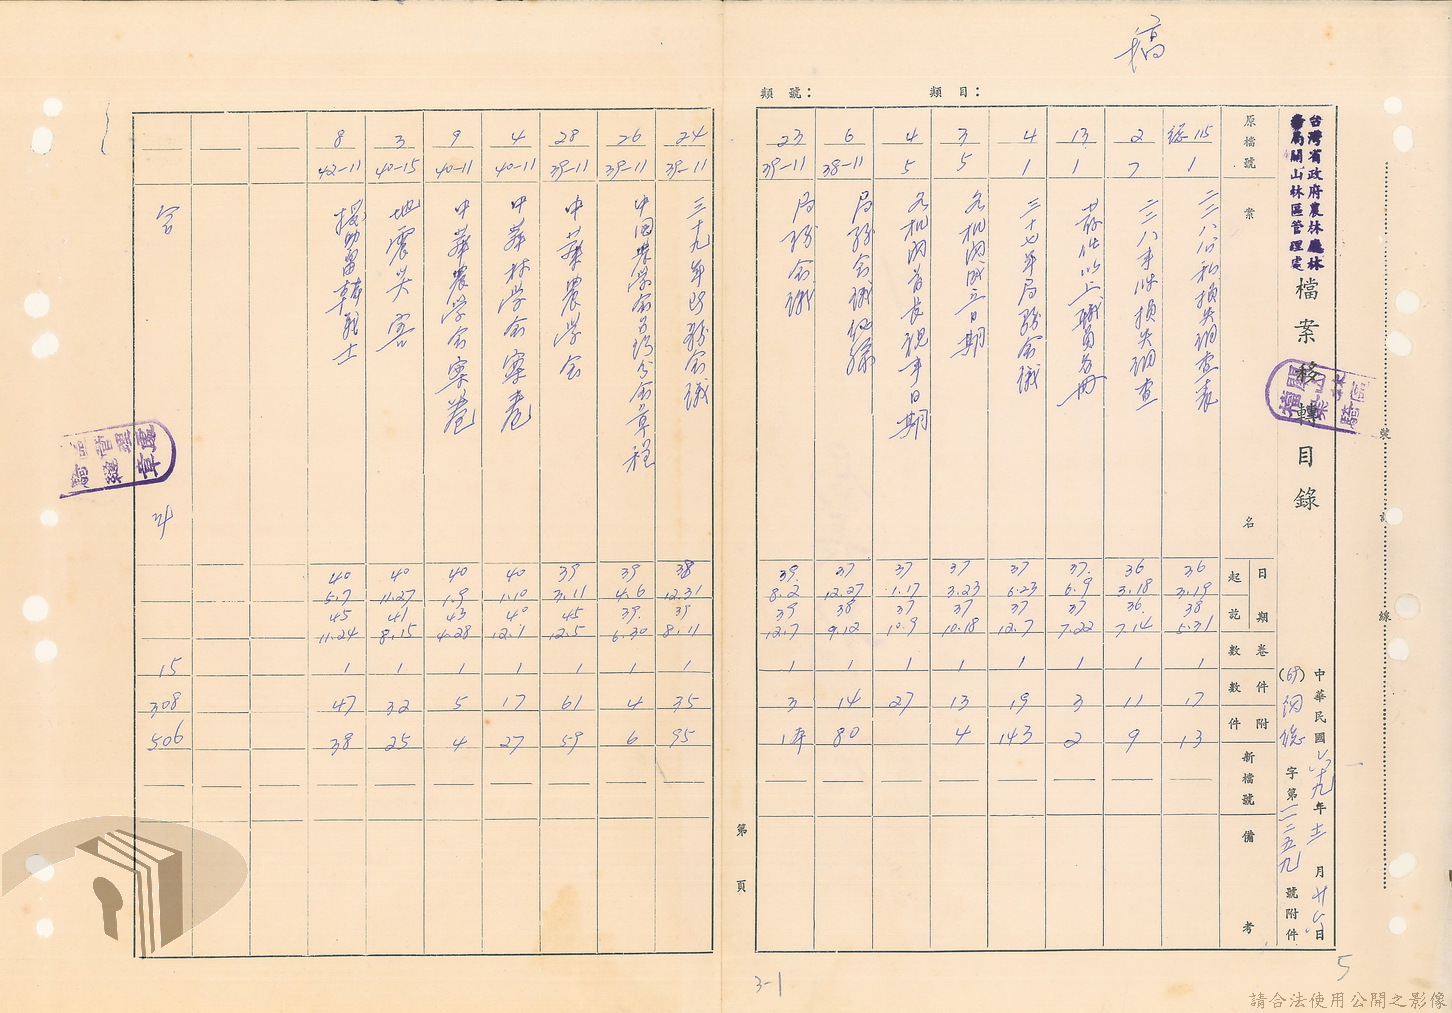 稿
類號：
類目：
台灣省政府農林廳林
務局關山林區管理處
檔案移轉目錄
中華民國六十九年十二月廿六日
(69)關總字第一二二五九號附件
原檔號
案名
日期
起訖
卷數
件數
附件
新檔號
備考
總115
1
二二八公私損失調查表
36
3.19
38
5.31
1
17
13
2
7
二二八事件損失調查
36
3.18
36
7.14
1
11
9
13
1
荐任以上職員名冊
37
6.9
37
7.22
1
3
2
4
1
三十七年局務會議
37
6.23
37
12.7
1
19
143
3
5
各機關成立日期
37
3.23
37
10.18
1
13
4
4
5
各機關首長視事日期
37
1.17
37
10.9
1
27
6
38-11
局務會議紀錄
37
12.27
38
9.12
1
14
80
23
39-11
局務會議
39
8.2
39
12.7
1
3
1本
第 頁
24
39-11
三十九年時務會議
38
12.31
39
8.11
1
35
95
26
39-11
中國農學會台灣分會章程
39
4.6
39
6.30
1
4
6
28
39-11
中華農學會
39
3.11
45
12.5
1
61
59
4
40-11
中華林學會案卷
40
1.10
40
12.1
1
17
27
9
40-11
中華農學會案卷
40
1.9
43
4.28
1
5
4
3
40-15
地震災害
40
11.27
41
8.15
1
32
25
8
42-11
援助留韓戰士
40
5.7
45
11.24
1
47
38
合計
15
308
506
裝訂線
3-1
5
請合法使用公開之影像